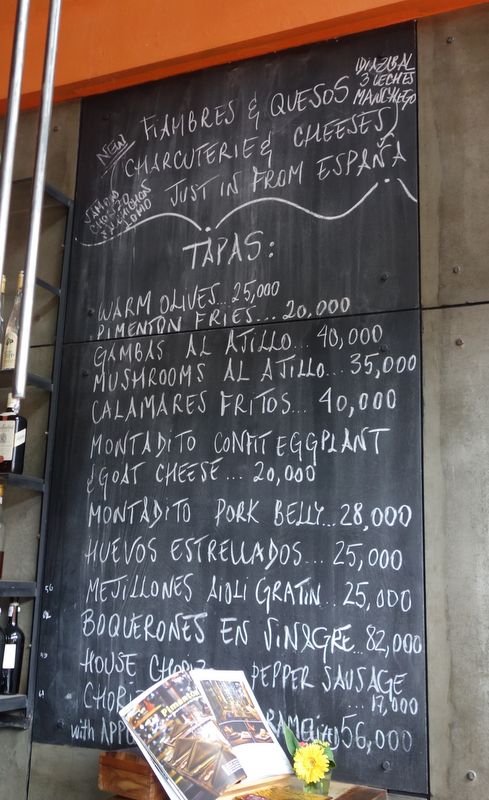 IDIAZIBAL
3 LECHES
MANCHEGO
NEW
FIAMBRES & QUESOS
CHARCUTERIE & CHEESES
JUST IN FROM ESPAÑA
JAMON
CHORIZO
SALCHICHON
LOMO
TAPAS:
WARM OLIVES... 25,000
PIMENTON FRIES... 20,000
GAMBAS AL AJILLO... 40,000
MUSHROOMS AL AJILLO... 35,000
CALAMARES FRITOS... 40,000
MONTADITO CONFIT EGGPLANT
& GOAT CHEESE... 20,000
MONTADITO PORK BELLY... 28,000
HUEVOS ESTRELLADOS... 25,000
MEJILLONES AIOLI GRATIN... 25,000
BOQUERONES EN VINAGRE... 82,000
HOUSE PEPPER SAUSAGE
... 17,000
with 56,000
Pimentón